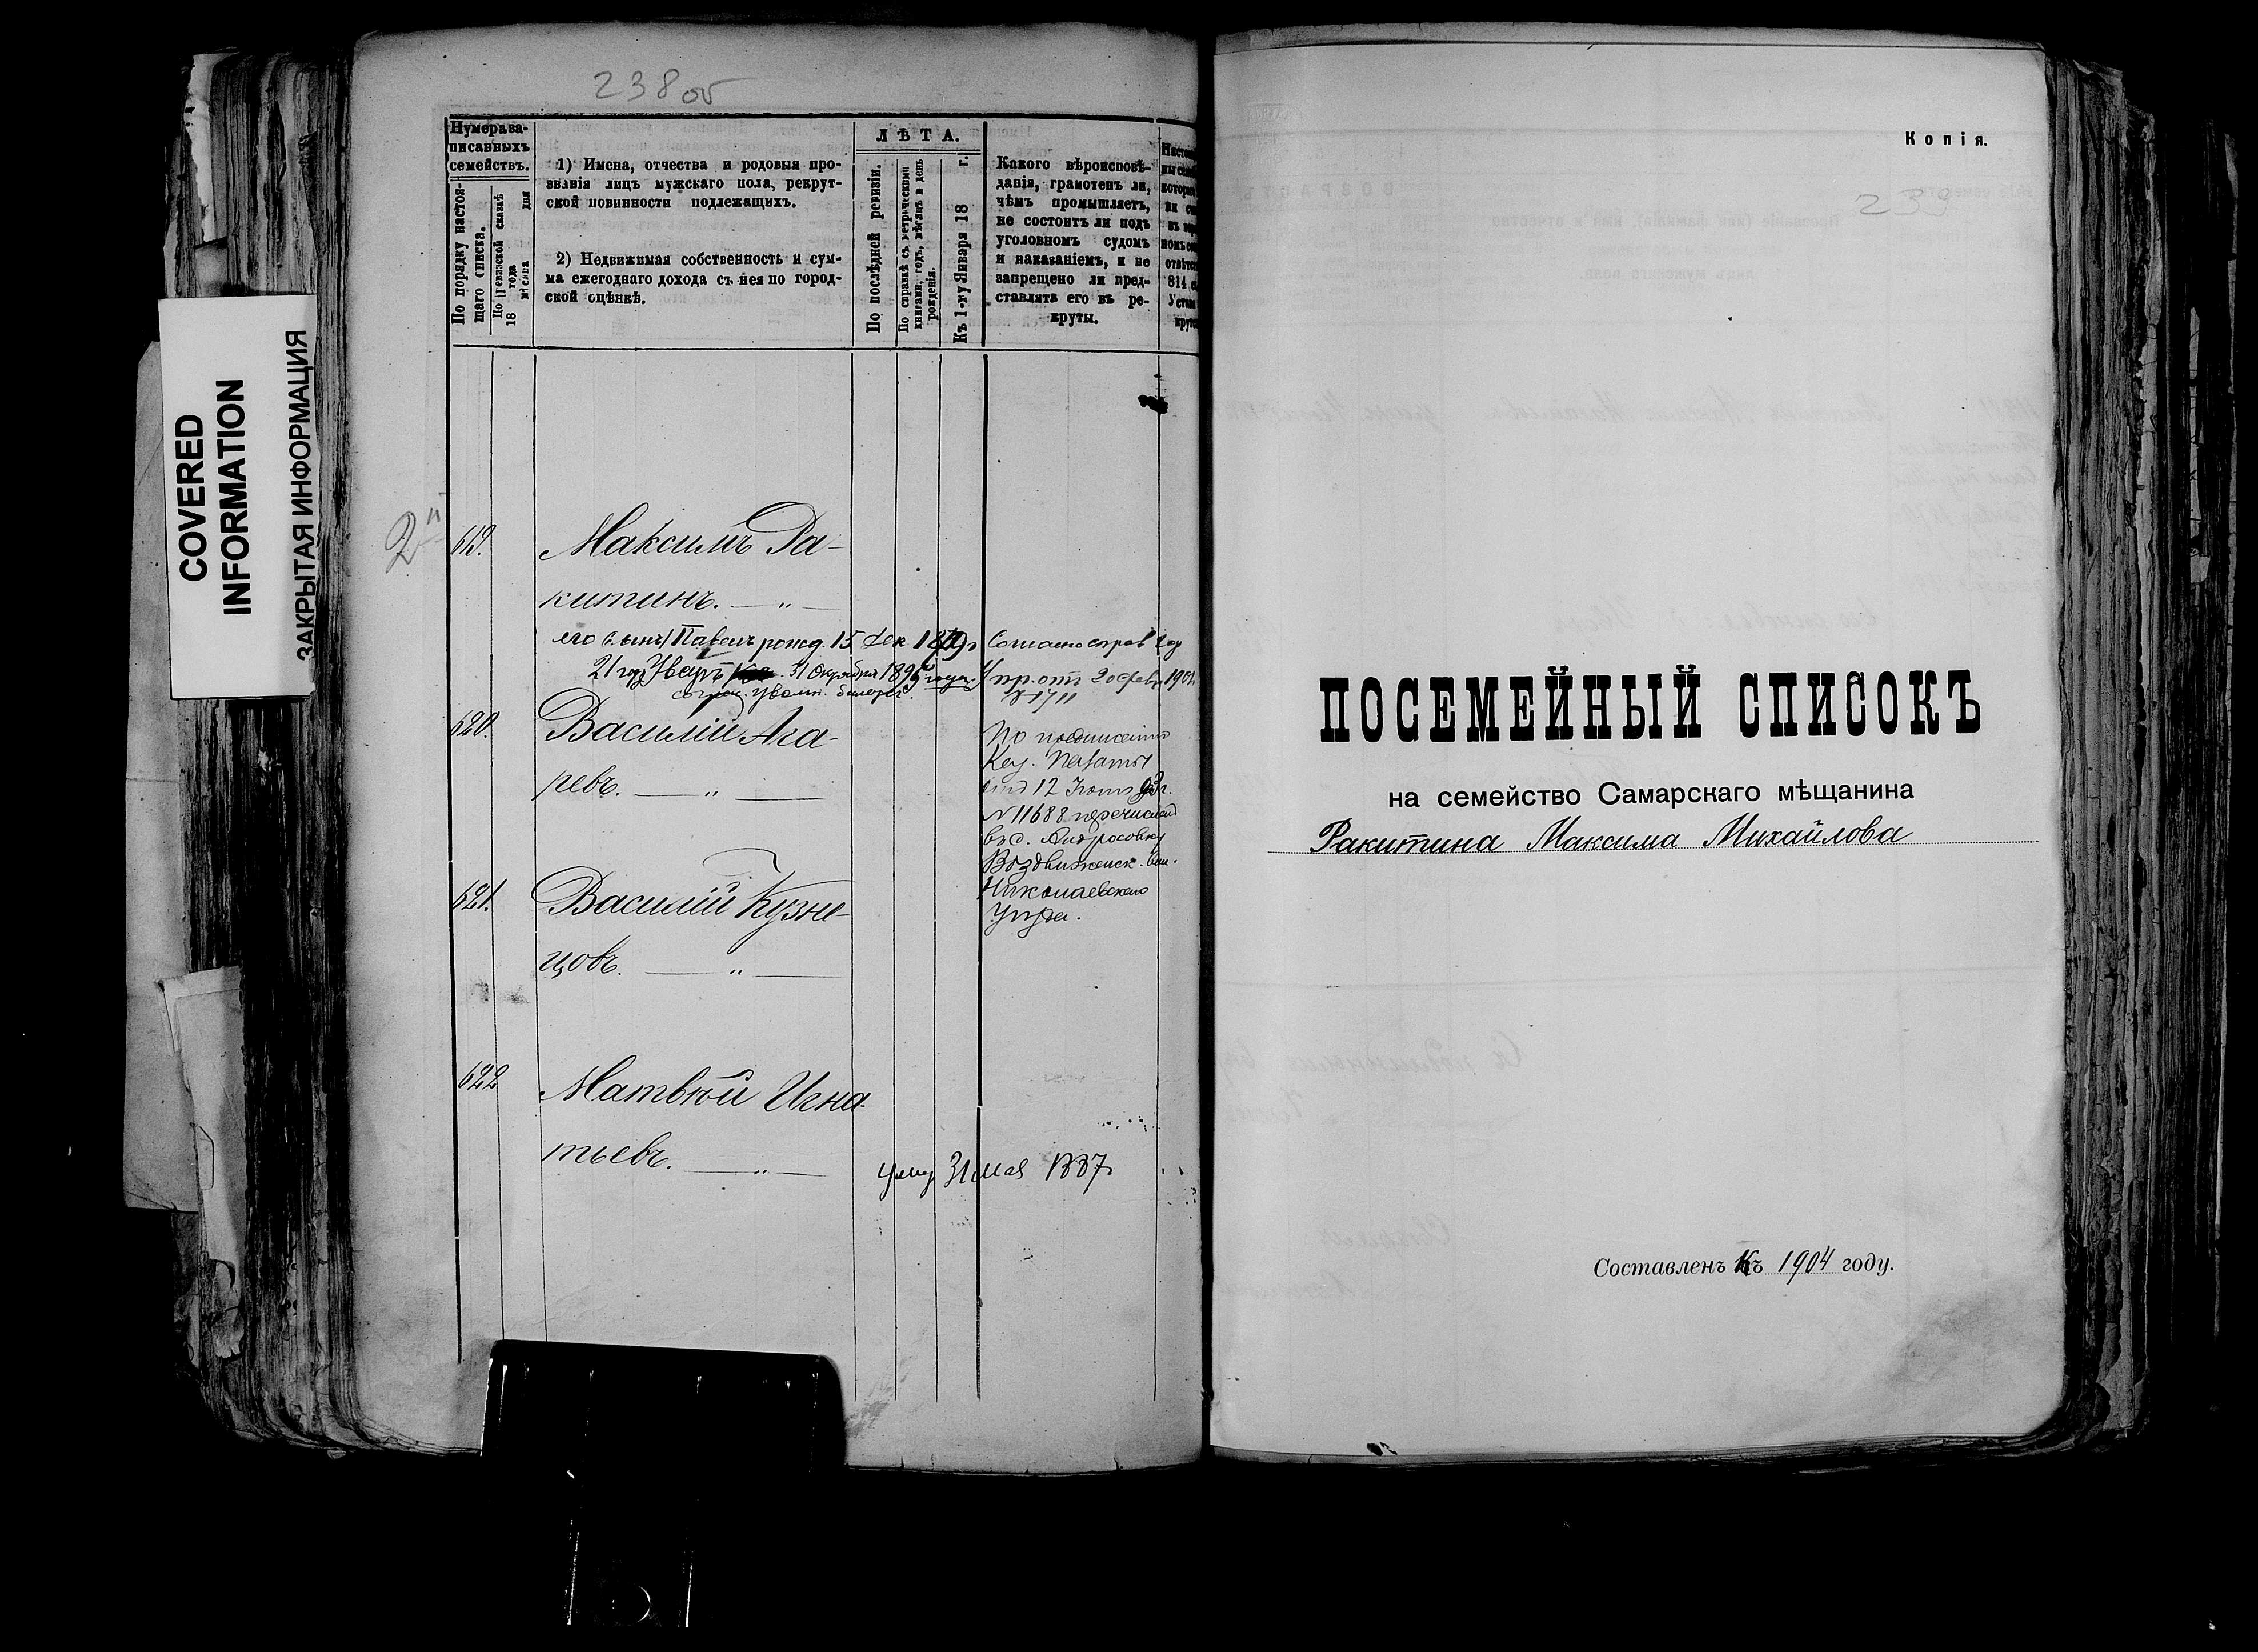 COVERED
INFORMATION
ЗАКРЫТАЯ ИНФОРМАЦИЯ
238 об
Нумера за-
писанныхъ
семействъ.
По порядку настоя-
щаго списка.
По ревизской сказкѣ
18 года
мѣсяца дня
1) Имена, отчества и родовыя про-
званія лицъ мужскаго пола, рекрут-
ской повинности подлежащихъ.
2) Недвижимая собственность и сум-
ма ежегоднаго дохода съ нея по город-
ской оцѣнкѣ.
ЛѢТА.
По послѣдней ревизіи.
По справкѣ съ метрическими
книгами, годъ, мѣсяцъ и день
рожденія.
Къ 1-му Января 18 г.
Какого вѣроисповѣ-
данія, грамотенъ ли,
чѣмъ промышляетъ,
не состоитъ ли подъ
уголовномъ судомъ
и наказаніемъ, и не
запрещено ли пред-
ставлять его въ ре-
круты.
2й
619.
Максимъ Ра-
китинъ. — „ —
его сынъ Павелъ рожд. 15 Дек 1879 г
21 г Уваръ 31 Октября 189
Согласно справ
пр. от 20 февр 190
№ 1711
620.
Василій Ага-
ревъ. — „ —
По предписанію
Каз. Палаты
12 93 г.
N 11688 перечислен
въ с. Андросовку
Воздвиженск. вол.
Николаевскаго
уезда.
621.
Василій Кузне-
цовъ. — „ —
622
Матвѣй Игна-
тьевъ. — „ —
31 мая 1887 г
Копія.
239
ПОСЕМЕЙНЫЙ СПИСОКЪ
на семейство Самарскаго мѣщанина
Ракитина Максима Михайлова
Составленъ Къ 1904 году.